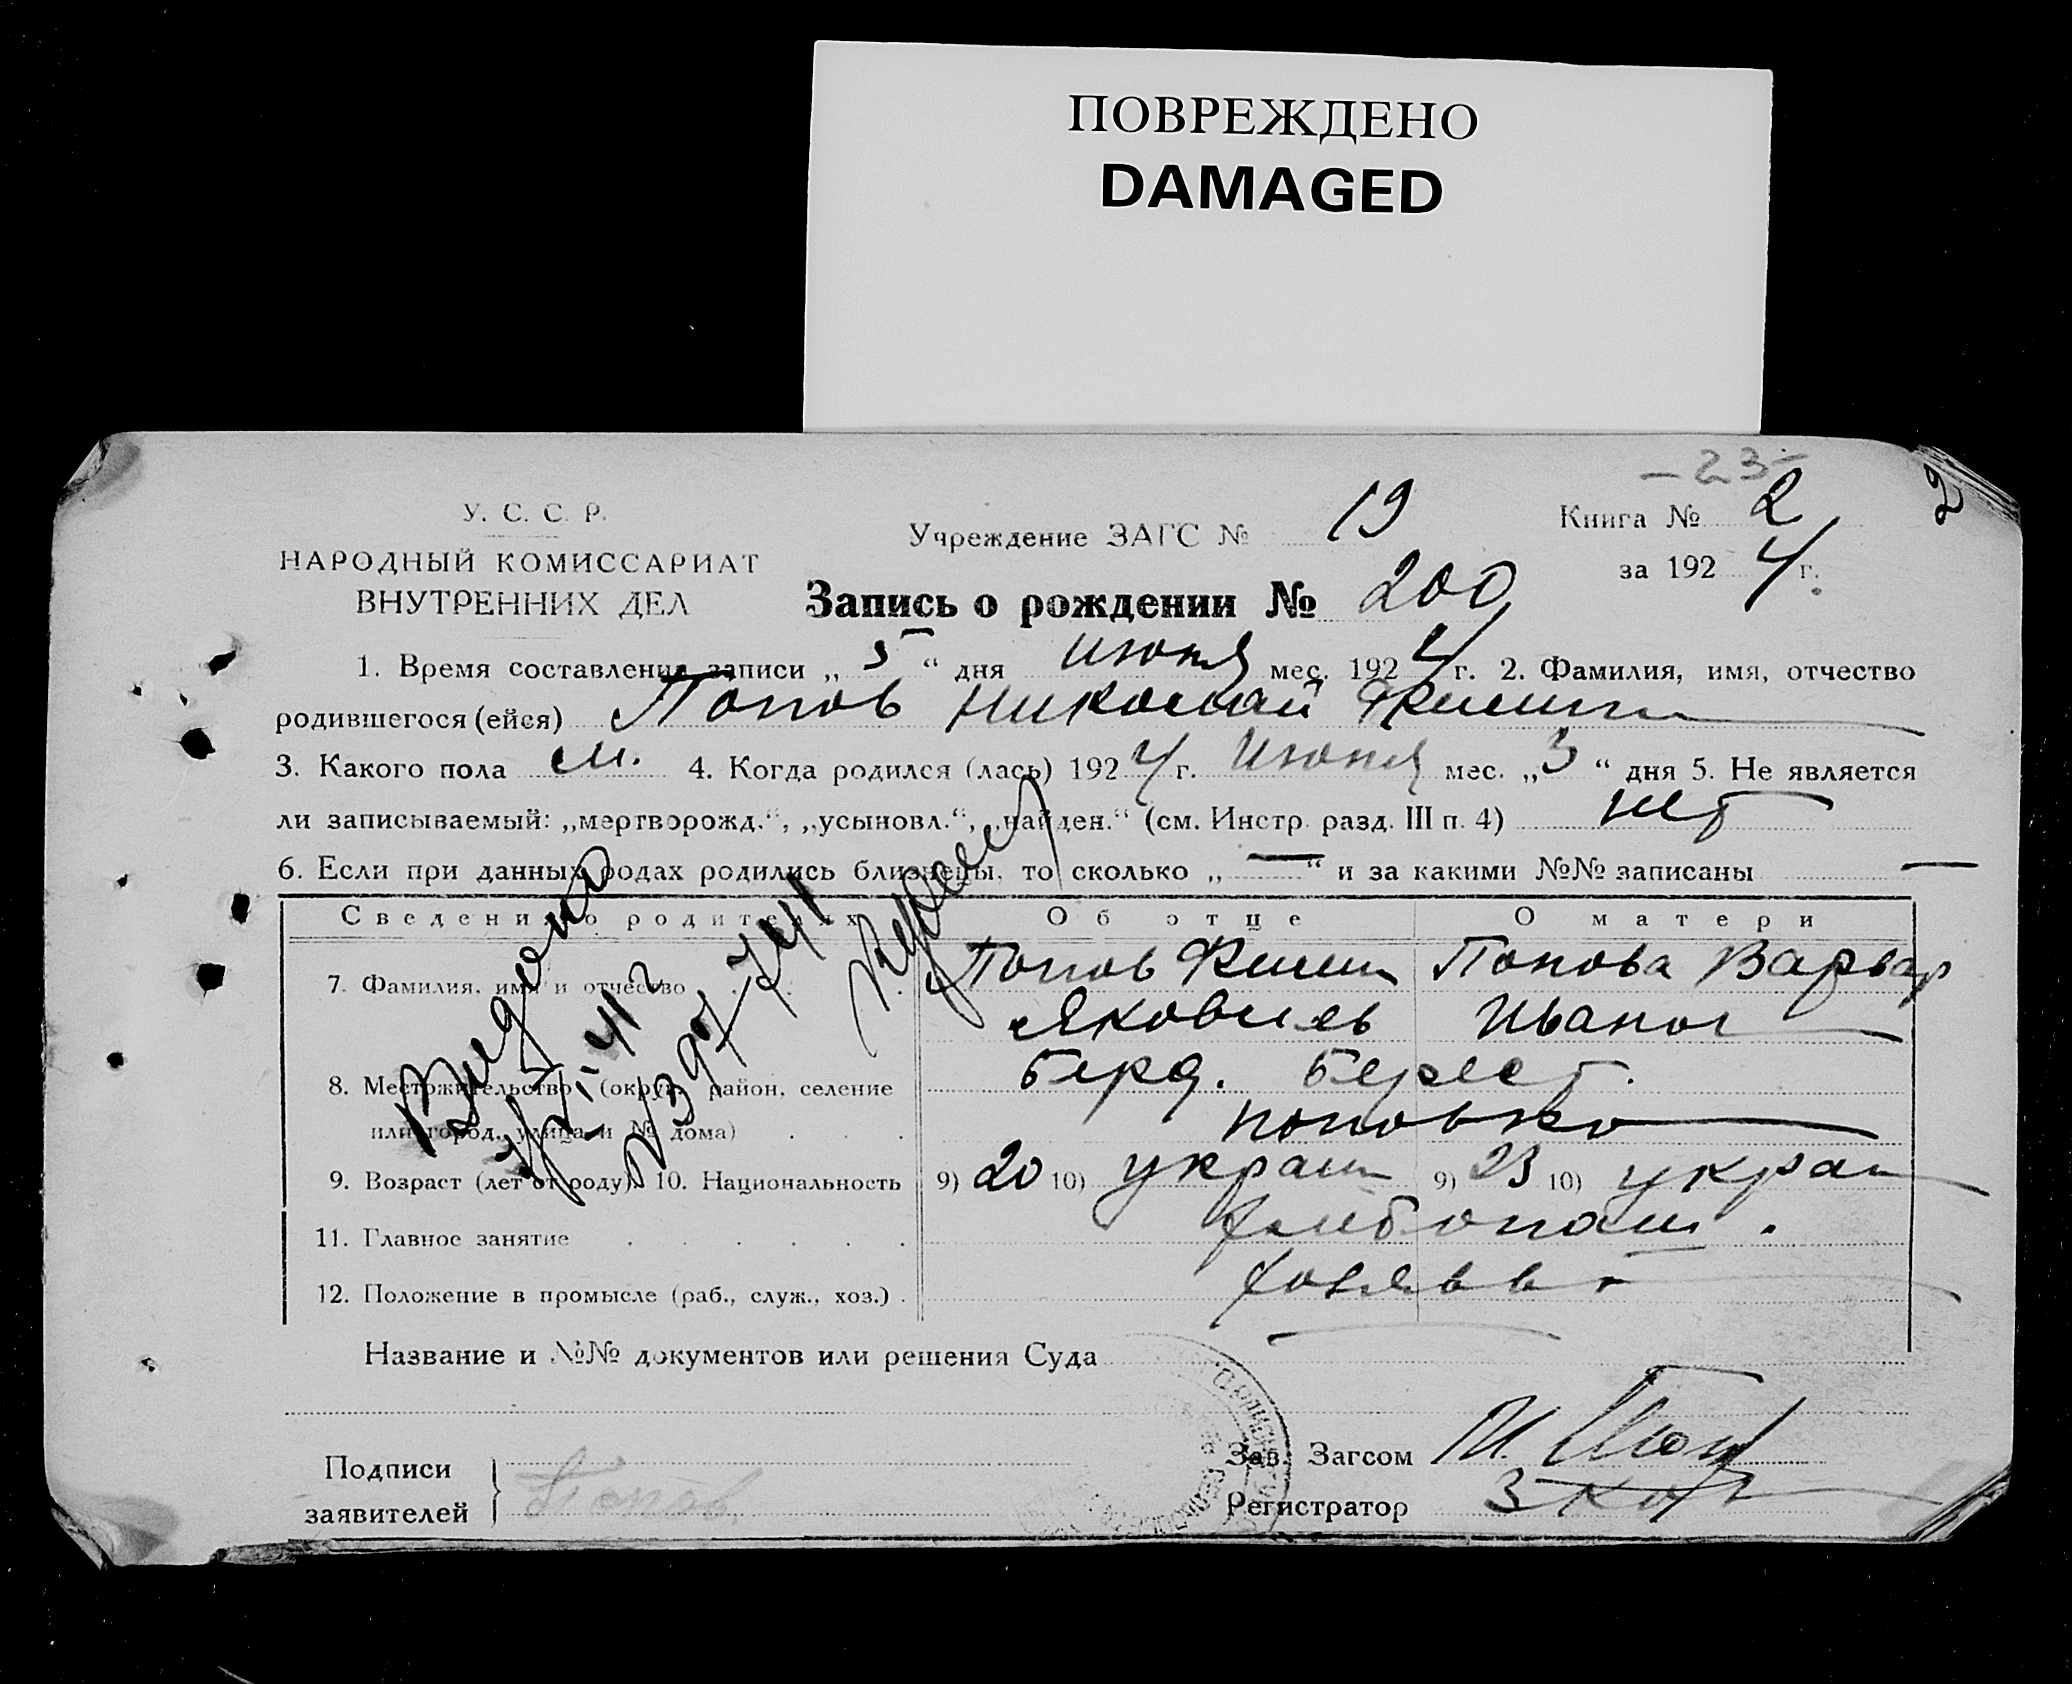 ПОВРЕЖДЕНО
DAMAGED
- 23 -
2
У. С. С. Р.
НАРОДНЫЙ КОМИССАРИАТ
ВНУТРЕННИХ ДЕЛ
Учреждение ЗАГС № 19
Книга № 2
за 1924 г.
Запись о рождении № 200
1. Время составления записи „5“ дня июня мес. 1924 г. 2. Фамилия, имя, отчество
родившегося (ейся) Попов Николай Филипп
3. Какого пола м. 4. Когда родился (лась) 1924 г. Июня мес. „3“ дня 5. Не является
ли записываемый: „мертворожд.“, „усыновл.“, „найден.“ (см. Инстр. разд. III п. 4) нет
6. Если при данных родах родились близнецы, то сколько „—“ и за какими №№ записаны —
Сведения о родителях Об отце О матери
7. Фамилия, имя и отчество Попов Филип Попова Варвар
Яковлев Иванов
8. Местожительство (округ, район, селение Берд. Берест.
или город, улица и № дома) поповко
9. Возраст (лет от роду). 10. Национальность 9) 20 10) украин 9) 23 10) украи
11. Главное занятие хлебопаш.
12. Положение в промысле (раб., служ., хоз.) хозяев
Выдано
Название и №№ документов или решения Суда
Подписи
заявителей Попов
Зав. Загсом
Регистратор